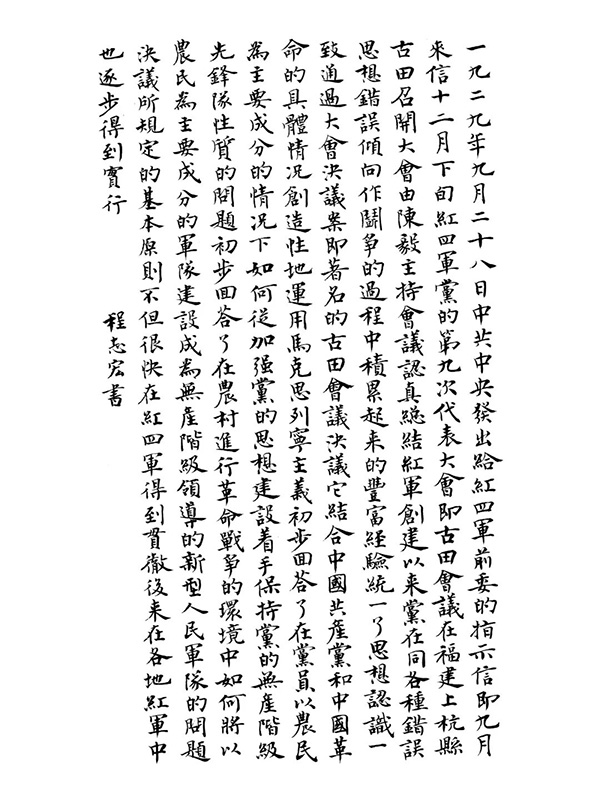 一九二九年九月二十八日中共中央發出給紅四軍前委的指示信即九月
來信十二月下旬紅四軍黨的第九次代表大會即古田會議在福建上杭縣
古田召開大會由陳毅主持會議認真總結紅軍創建以來黨在同各種錯誤
思想錯誤傾向作鬭爭的過程中積累起来的豐富経驗統一了思想認識一
致通過大會決議案即著名的古田會議決議它結合中國共産黨和中國革
命的具體情况創造性地運用馬克思列寧主義初步回答了在黨員以農民
為主要成分的情况下如何從加强黨的思想建設着手保持黨的無產階級
先鋒隊性質的問題初步回答了在農村進行革命戰爭的環境中如何將以
農民為主要成分的軍隊建設成為無産階級領導的新型人民軍隊的問題
決議所規定的基本原則不但很快在紅四軍得到貫徹後来在各地紅軍中
也逐步得到實行
程志宏書